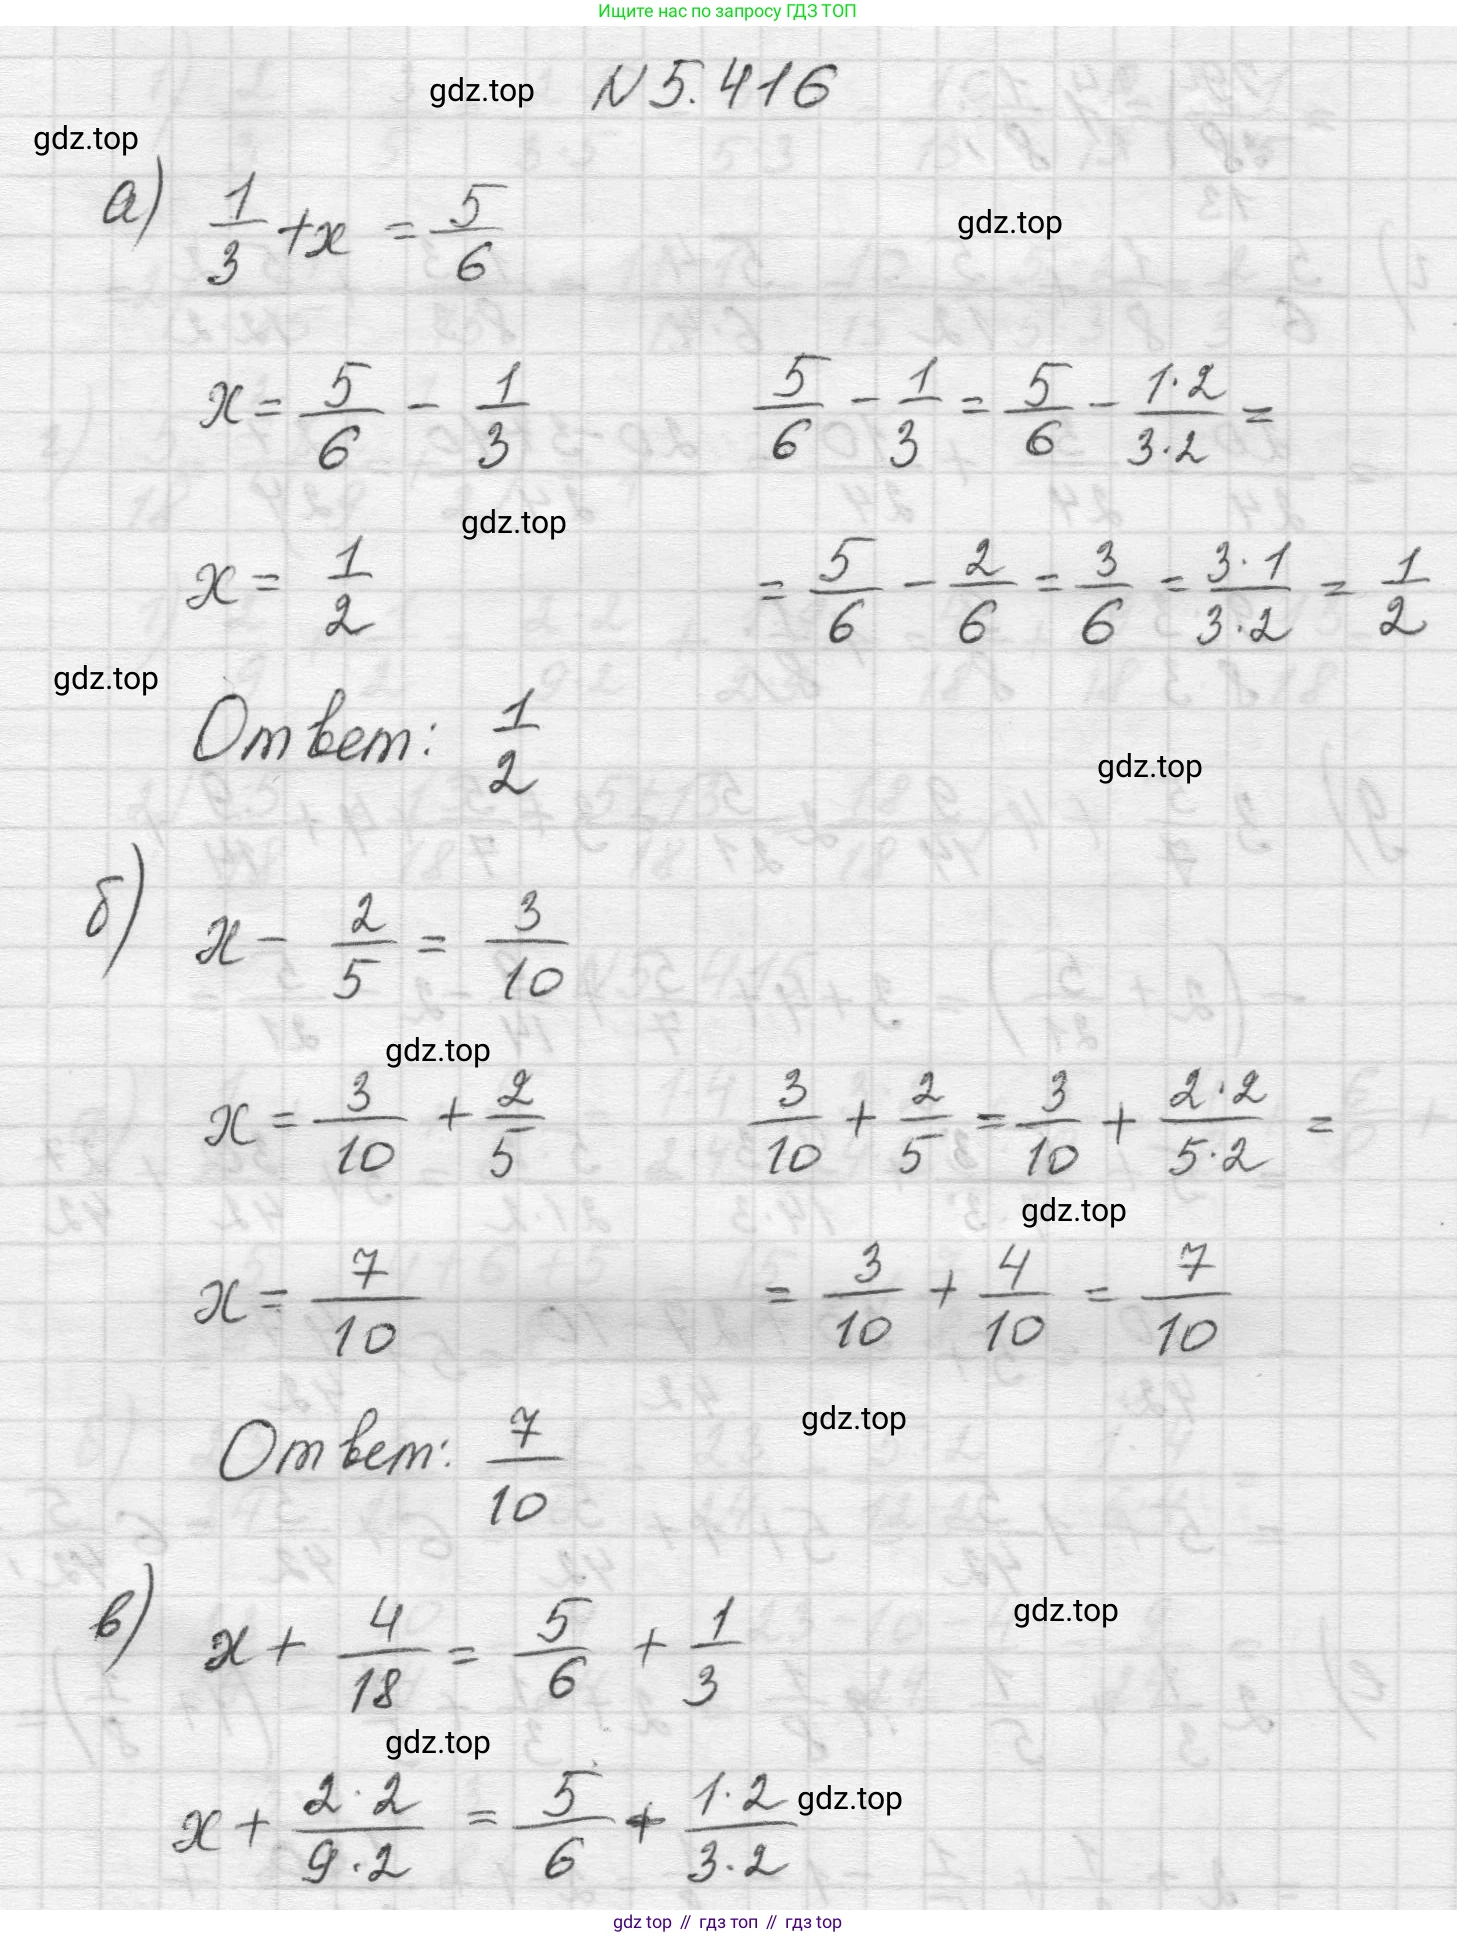 Ищите нас по запросу ГДЗ ТОП
gdz.top N 5.416
gdz.top
а) 1/3 + x = 5/6
gdz.top
x = 5/6 - 1/3    5/6 - 1/3 = 5/6 - 1·2/3·2 =
gdz.top
x = 1/2    = 5/6 - 2/6 = 3/6 = 3·1/3·2 = 1/2
gdz.top
Ответ: 1/2
gdz.top
б) x - 2/5 = 3/10
gdz.top
x = 3/10 + 2/5    3/10 + 2/5 = 3/10 + 2·2/5·2 =
gdz.top
x = 7/10    = 3/10 + 4/10 = 7/10
gdz.top
Ответ: 7/10
gdz.top
в) x + 4/18 = 5/6 + 1/3
gdz.top
x + 2·2/9·2 = 5/6 + 1·2/3·2 gdz.top
gdz top // гдз топ // гдз top